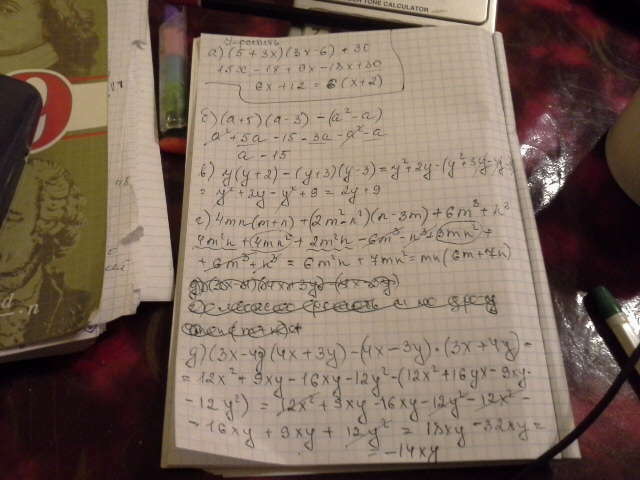 TONE CALCULATOR
9
Упростить
а) (5+3x)(3x-6)+30
15x-18+9x-18x+30
6x+12=6(x+2)
б) (a+5)(a-3)-(a²-a)
a²+5a-15-3a-a²-a
a-15
в) y(y+2)-(y+3)(y-3)=y²+2y-(y²+3y-
=y²+2y-y²+9=2y+9
г) 4mn(m+n)+(2m²-n²)(n-3m)+6m³+n³
4m²n+4mn²+2m²n-6m³-n³+3mn²+
+6m³+n³=6m²n+7mn²=mn(6m+7n)
д) (3x-4y)(4x+3y)-(4x-3y)·(3x+4y)=
=12x²+9xy-16xy-12y²-(12x²+16yx-9xy-
-12y²)=12x²+9xy-16xy-12y²-12x²-
-16xy+9xy+12y²=18xy-32xy=
=-14xy